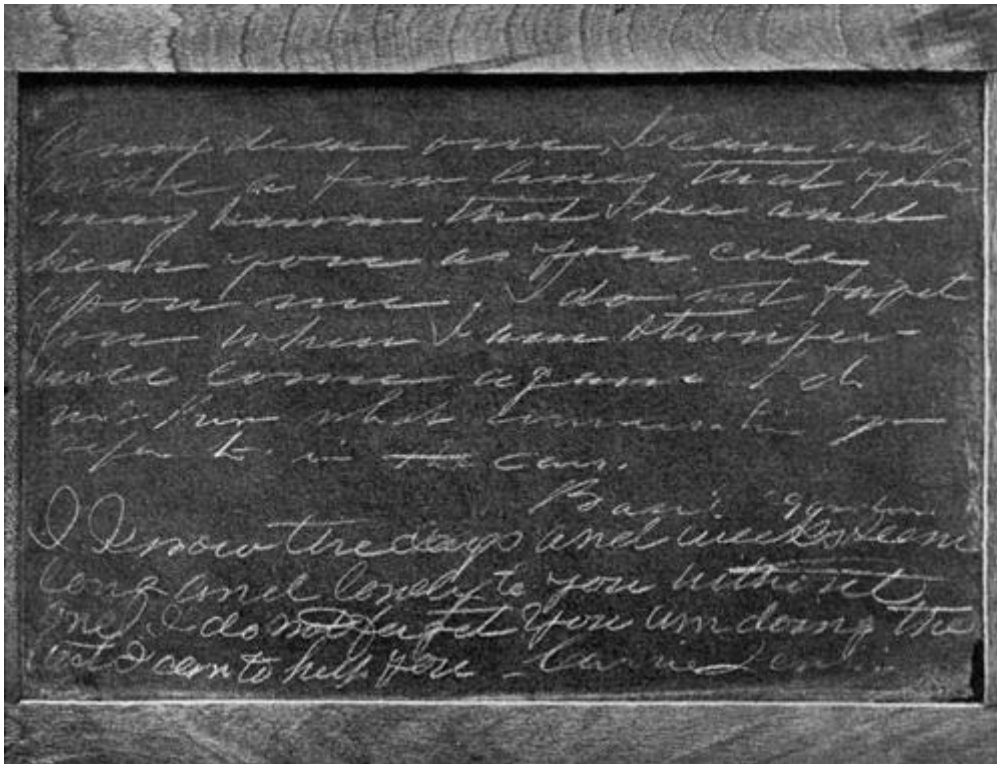 my dear one, I can only
write a few lines that you
may know that I see and
hear you as you call
upon me, I do not forget
you when I am stronger
will come again I do
not know what
in the
I know the days and weeks seem
long and lonely to you without
me. I do not forget you am doing the
best I can to help you - Carrie